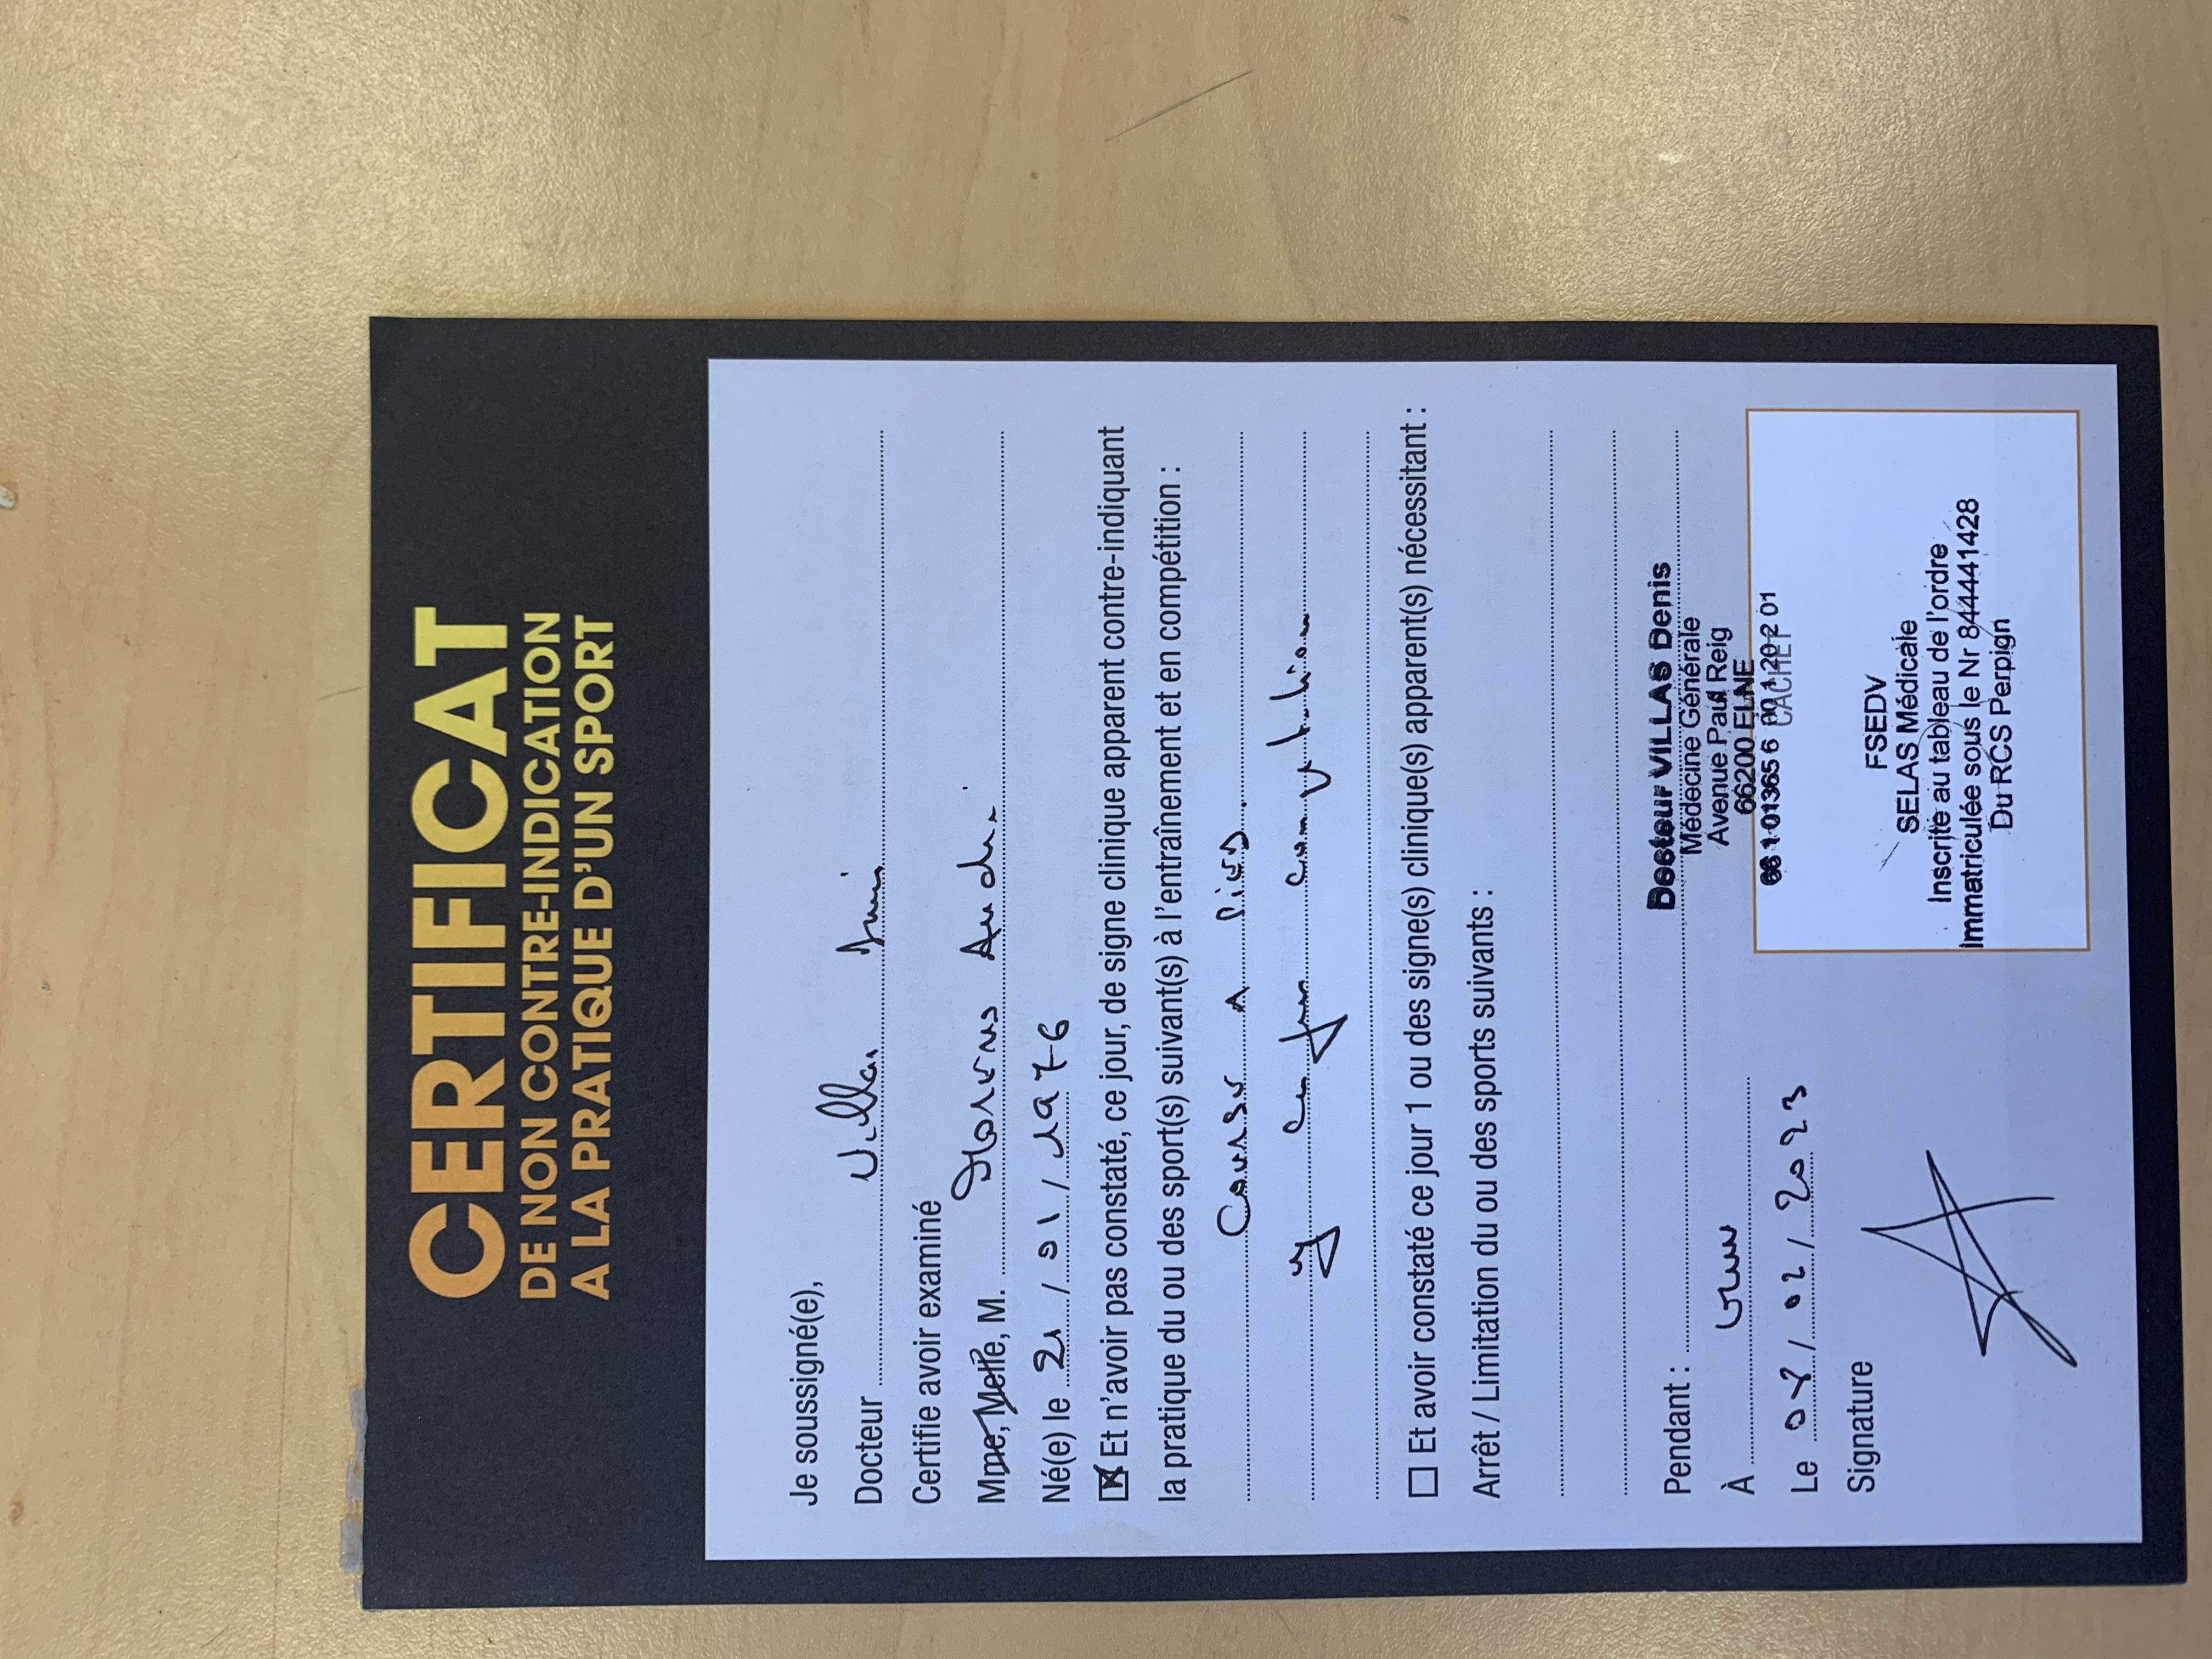 CERTIFICAT
DE NON CONTRE-INDICATION
A LA PRATIQUE D'UN SPORT
Je soussigné(e),
Docteur Villas Denis
Certifie avoir examiné
Mme, Melle, M.
Né(e) le 21 / 01 / 1976
Et n'avoir pas constaté, ce jour, de signe clinique apparent contre-indiquant
la pratique du ou des sport(s) suivant(s) à l'entraînement et en compétition :
Course a pied
en compétition
Et avoir constaté ce jour 1 ou des signe(s) clinique(s) apparent(s) nécessitant :
Arrêt / Limitation du ou des sports suivants :
Pendant :
À
Le / 02 / 2023
Signature
Docteur VILLAS Denis
Médecine Générale
Avenue Paul Reig
66200 ELNE
CACHET
FSEDV
SELAS Médicale
Inscrite au tableau de l'ordre
Immatriculée sous le Nr 844441428
Du RCS Perpign